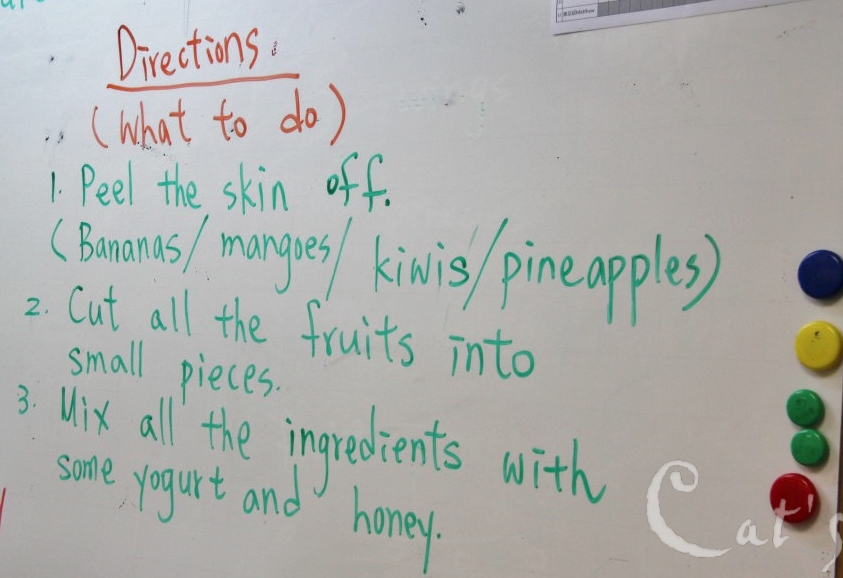 Directions:
(What to do)
1. Peel the skin off.
(Bananas/mangoes/kiwis/pineapples)
2. Cut all the fruits into
small pieces.
3. Mix all the ingredients with
some yogurt and honey.
Cat's